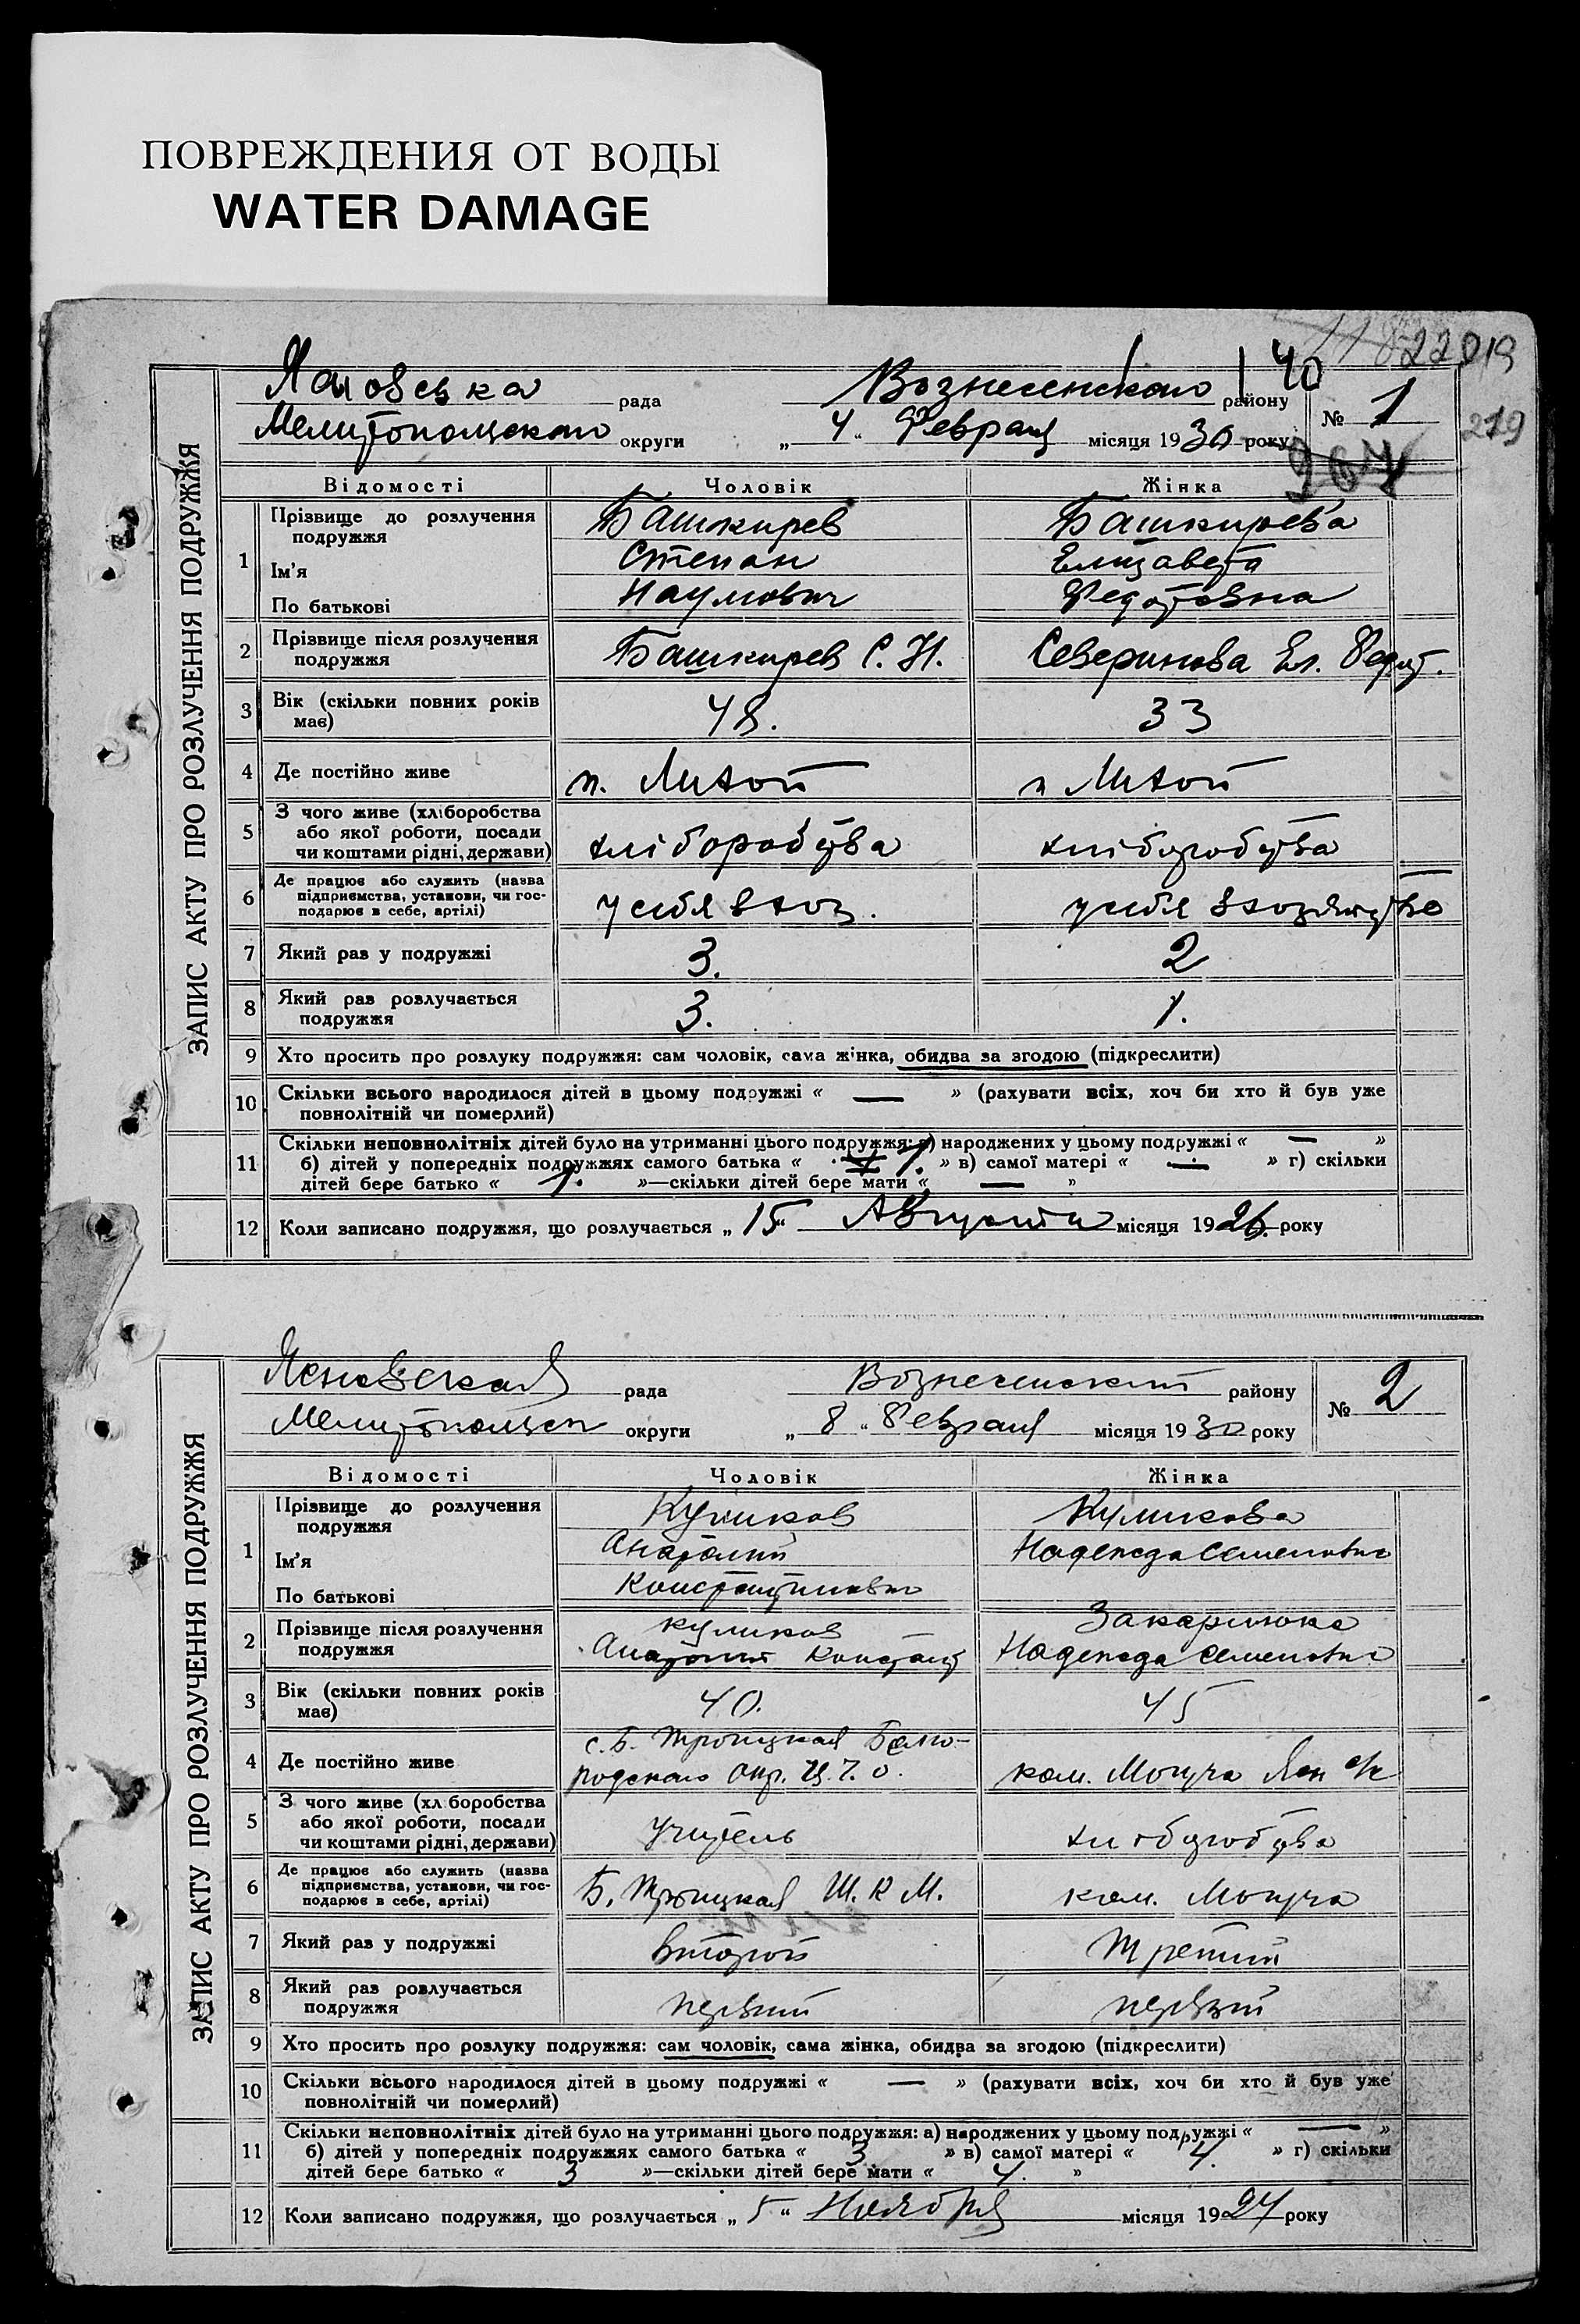 ПОВРЕЖДЕНИЯ ОТ ВОДЫ
WATER DAMAGE
219
140
ЗАПИС АКТУ ПРО РОЗЛУЧЕННЯ ПОДРУЖЖЯ
рада Вознесенского району № 1
219
Мелитопольского округи „ 4 “ Февраля місяця 1930 року
207
Відомості Чоловік Жінка
1 Прізвище до розлучення Башкирев Башкирева
подружжя
Ім’я Степан Елизавета
По батькові Наумович Федотовна
2 Прізвище після розлучення Башкирев С. Н. Северинова Ел. Федот.
подружжя
3 Вік (скільки повних років 48. 33
має)
4 Де постійно живе п. Лихой п Лихой
5 З чого живе (хліборобства
або якої роботи, посади хліборобства хліборобства
чи коштами рідні, держави)
6 Де працює або служить (назва
підприємства, установи, чи гос- у себя в хоз. у себя в хозяйство
подарює в себе, артілі)
7 Який раз у подружжі 3. 2
8 Який раз розлучається 3. 1.
подружжя
9 Хто просить про розлуку подружжя: сам чоловік, сама жінка, обидва за згодою (підкреслити)
10 Скільки всього народилося дітей в цьому подружжі « — » (рахувати всіх, хоч би хто й був уже
повнолітній чи померлий)
11 Скільки неповнолітніх дітей було на утриманні цього подружжя: а) народжених у цьому подружжі « — »
б) дітей у попередніх подружжях самого батька « 1. » в) самої матері « — » г) скільки
дітей бере батько « 1. »—скільки дітей бере мати « — »
12 Коли записано подружжя, що розлучається „ 15 “ Августа місяця 1926. року
ЗАПИС АКТУ ПРО РОЗЛУЧЕННЯ ПОДРУЖЖЯ
Яновская рада Вознесенский району № 2
Мелитопольск округи „ 8 “ Февраля місяця 1930 року
Відомості Чоловік Жінка
1 Прізвище до розлучення Куликов Куликова
подружжя
Ім’я Анатолий Надежда Семеновна
По батькові Константинович
2 Прізвище після розлучення Куликов
подружжя Анатолий Констант Надежда Семеновна
3 Вік (скільки повних років 40. 45
має)
4 Де постійно живе с. Б. Троицкая Бело-
родского окр. Ц.Ч.О. ком. Могуча
5 З чого живе (хліборобства
або якої роботи, посади учитель хліборобства
чи коштами рідні, держави)
6 Де працює або служить (назва
підприємства, установи, чи гос- Б. Троицкая Ш. К М. ком. Могуча
подарює в себе, артілі)
7 Який раз у подружжі второй третий
8 Який раз розлучається первый первый
подружжя
9 Хто просить про розлуку подружжя: сам чоловік, сама жінка, обидва за згодою (підкреслити)
10 Скільки всього народилося дітей в цьому подружжі « — » (рахувати всіх, хоч би хто й був уже
повнолітній чи померлий)
11 Скільки неповнолітніх дітей було на утриманні цього подружжя: а) народжених у цьому подружжі « — »
б) дітей у попередніх подружжях самого батька « 3 » в) самої матері « 4. » г) скільки
дітей бере батько « 3 »—скільки дітей бере мати « 4. »
12 Коли записано подружжя, що розлучається „ 5 “ Ноября місяця 1927 року